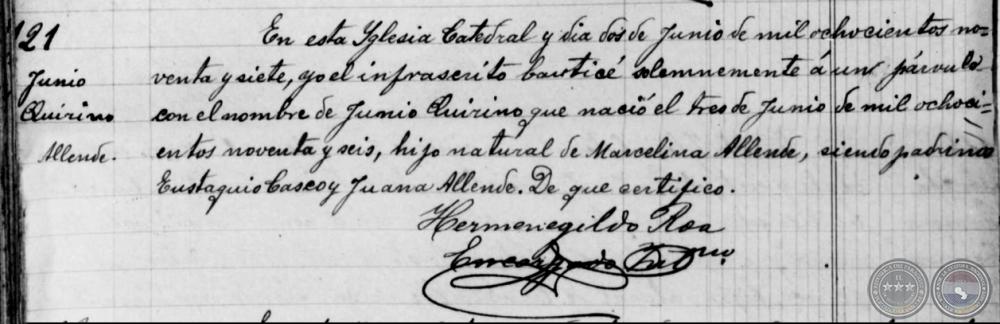 121
Junio
Quirino
Allende.
En esta Yglesia Catedral y dia dos de Junio de mil ochocientos no-
venta y siete, yo el infrascrito bauticé solemnemente á un párvulo
con el nombre de Junio Quirino que nació el tres de Junio de mil ochoci=
entos noventa y seis, hijo natural de Marcelina Allende, siendo padrinos
Eustaquio Casco y Juana Allende. De que certifico.
Hermenegildo Roa
Encargado